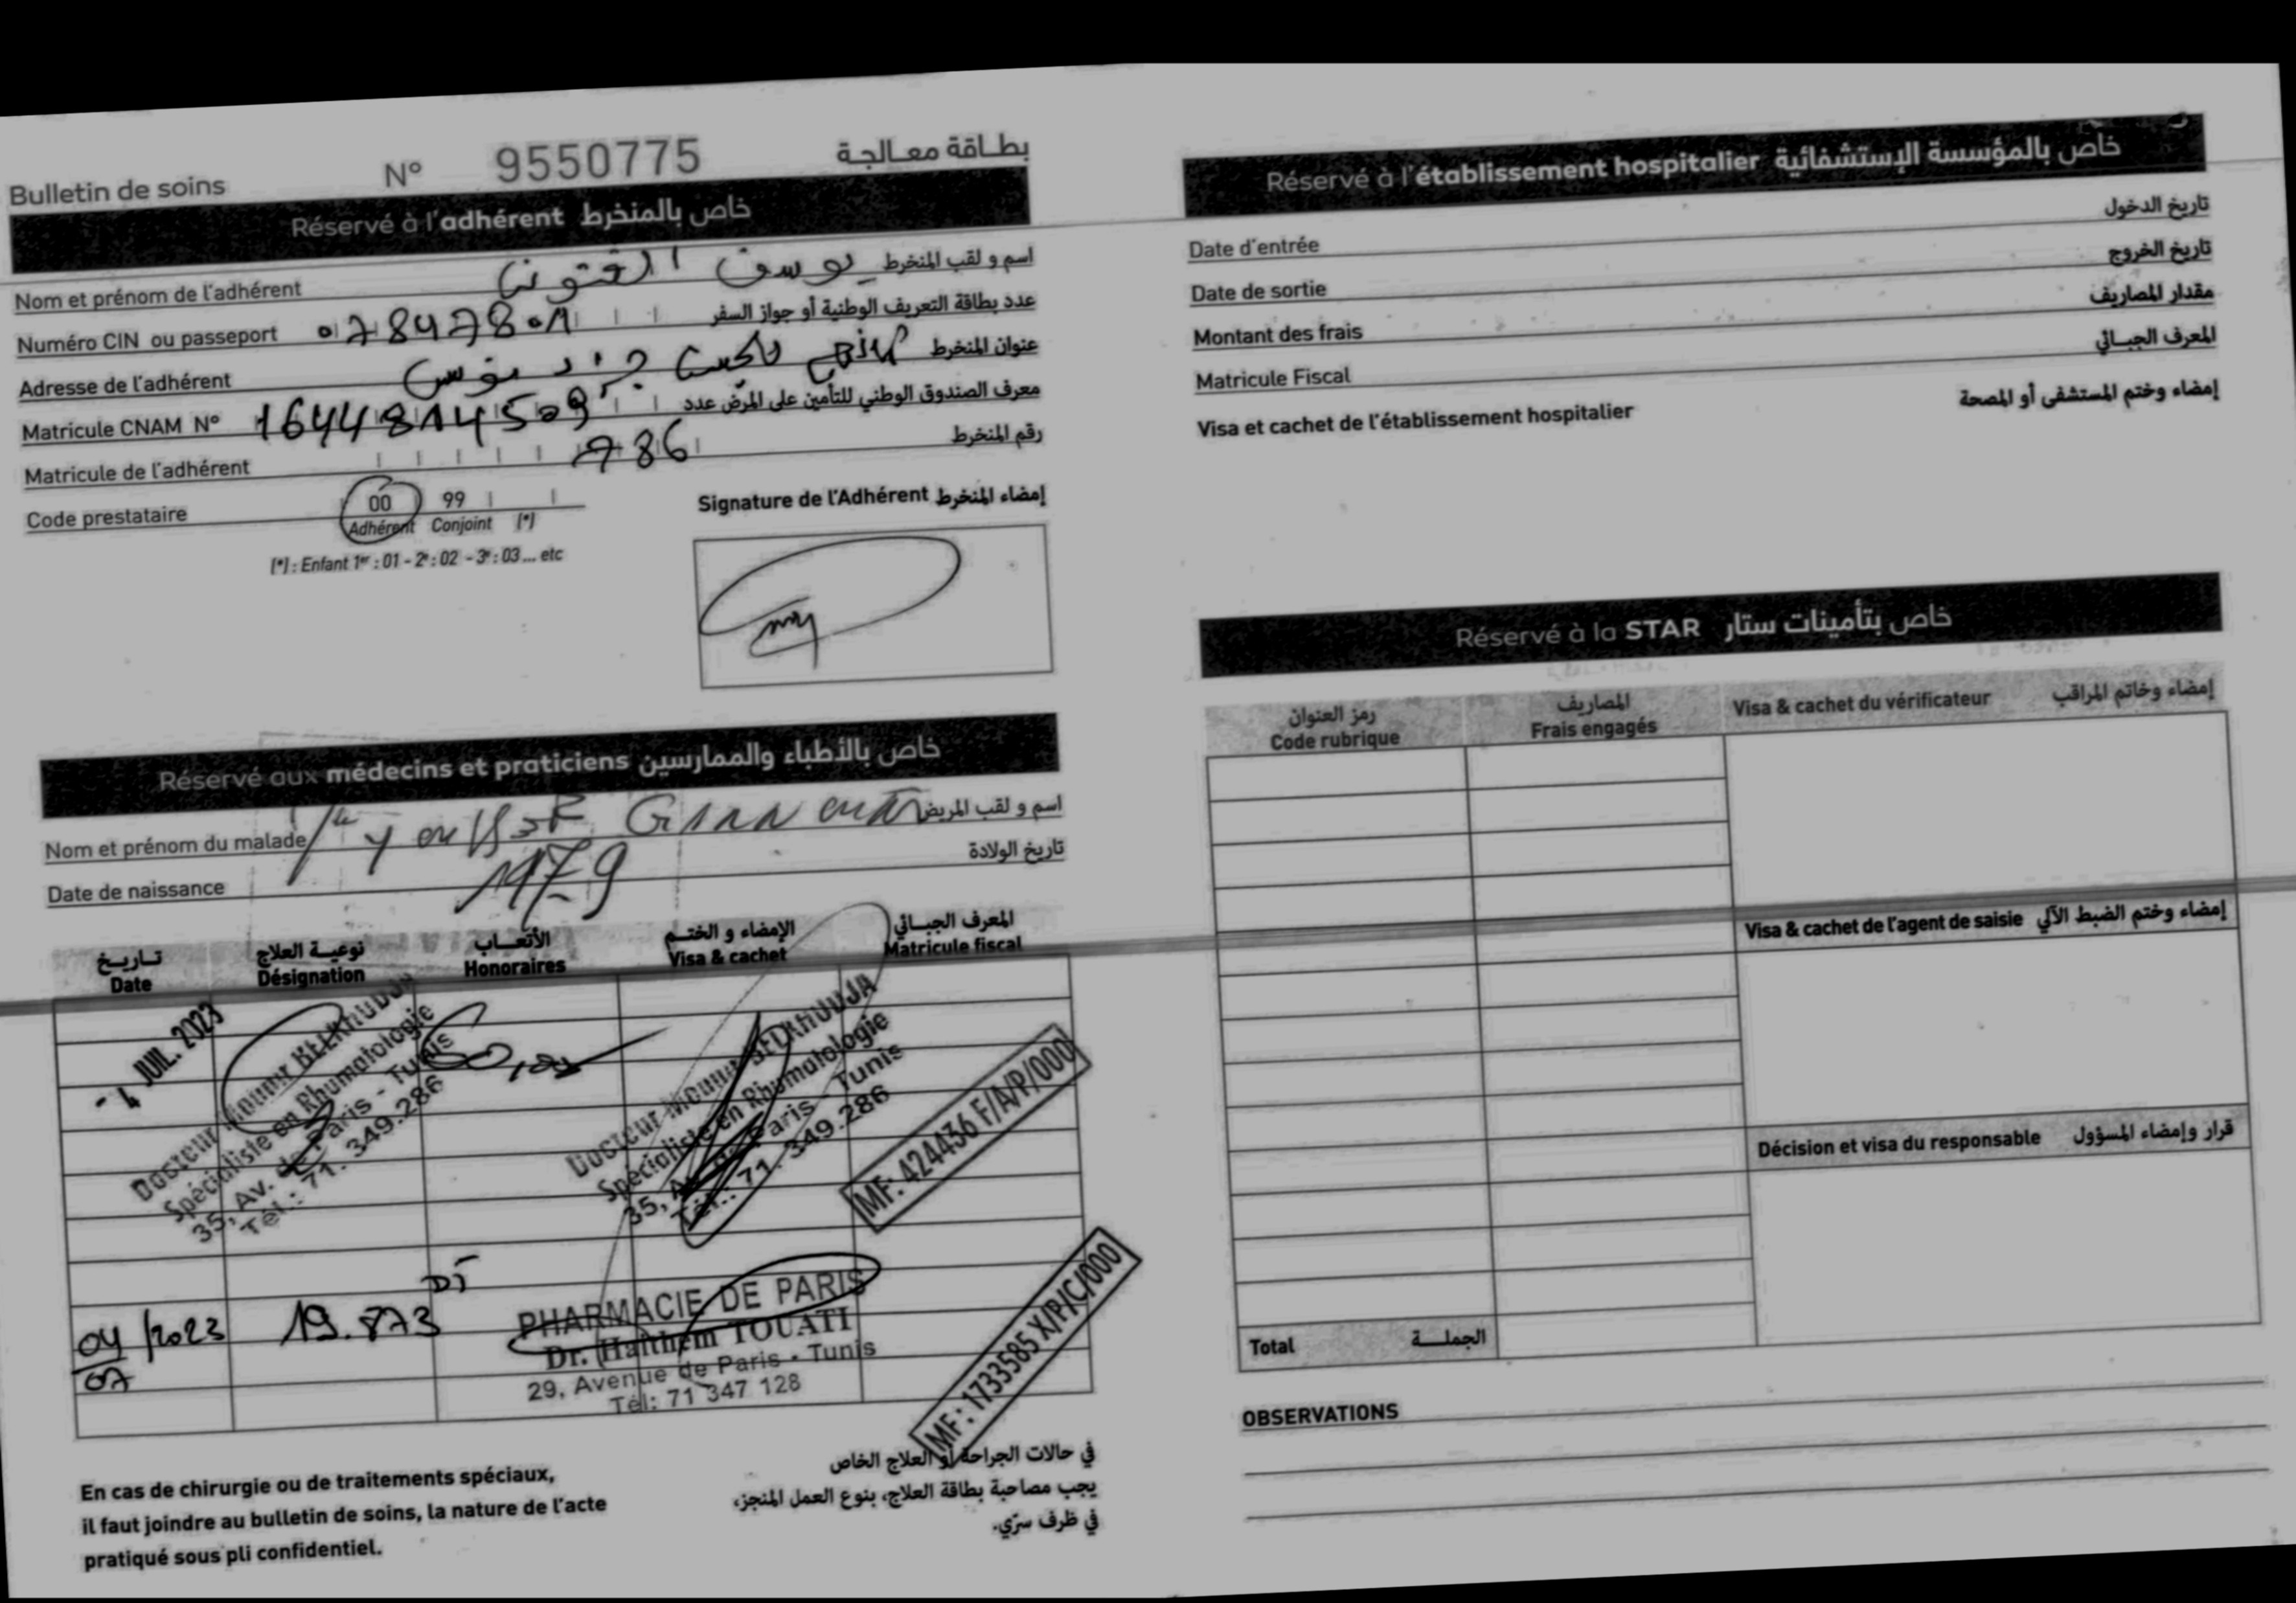 Bulletin de soins N° 9550775 بطاقة معالجة
Réservé à l'adhérent خاص بالمنخرط
Nom et prénom de l'adhérent يوسف اسم و لقب المنخرط
Numéro CIN ou passeport 07847801 عدد بطاقة التعريف الوطنية أو جواز السفر
Adresse de l'adhérent عنوان المنخرط
Matricule CNAM N° 16448114509 معرف الصندوق الوطني للتأمين على المرض عدد
Matricule de l'adhérent 786 رقم المنخرط
Code prestataire 00 99
Adhérent Conjoint (*)
(*) : Enfant 1er : 01 - 2e : 02 - 3e : 03 ... etc
Signature de l'Adhérent إمضاء المنخرط
Réservé aux médecins et praticiens خاص بالأطباء والممارسين
Nom et prénom du malade اسم و لقب المريض
Date de naissance 1979 تاريخ الولادة
تاريخ نوعية العلاج الأتعاب الإمضاء و الختم المعرف الجبائي
Date Désignation Honoraires Visa & cachet Matricule fiscal
- 4 JUIL. 2023
Docteur Mounir BELKHODJA
Spécialiste en Rhumatologie
35, Av. de Paris - Tunis
Tél.: 71. 349.286
Docteur Mounir BELKHODJA
Spécialiste en Rhumatologie
35, Av. de Paris - Tunis
Tél.: 71. 349.286
MF: 424436 F/A/P/000
04/07/2023 19.873 DT
PHARMACIE DE PARIS
Dr. Haithem TOUATI
29, Avenue de Paris - Tunis
Tél: 71 347 128
MF: 1733585 X/P/C/000
En cas de chirurgie ou de traitements spéciaux,
il faut joindre au bulletin de soins, la nature de l'acte
pratiqué sous pli confidentiel.
في حالات الجراحة أو العلاج الخاص
يجب مصاحبة بطاقة العلاج، بنوع العمل المنجز،
في ظرف سرّي.
Réservé à l'établissement hospitalier خاص بالمؤسسة الإستشفائية
Date d'entrée تاريخ الدخول
Date de sortie تاريخ الخروج
Montant des frais مقدار المصاريف
Matricule Fiscal المعرف الجبائي
Visa et cachet de l'établissement hospitalier إمضاء وختم المستشفى أو المصحة
Réservé à la STAR خاص بتأمينات ستار
رمز العنوان المصاريف
Code rubrique Frais engagés Visa & cachet du vérificateur إمضاء وخاتم المراقب
Visa & cachet de l'agent de saisie إمضاء وختم الضبط الآلي
Décision et visa du responsable قرار وإمضاء المسؤول
Total الجملة
OBSERVATIONS